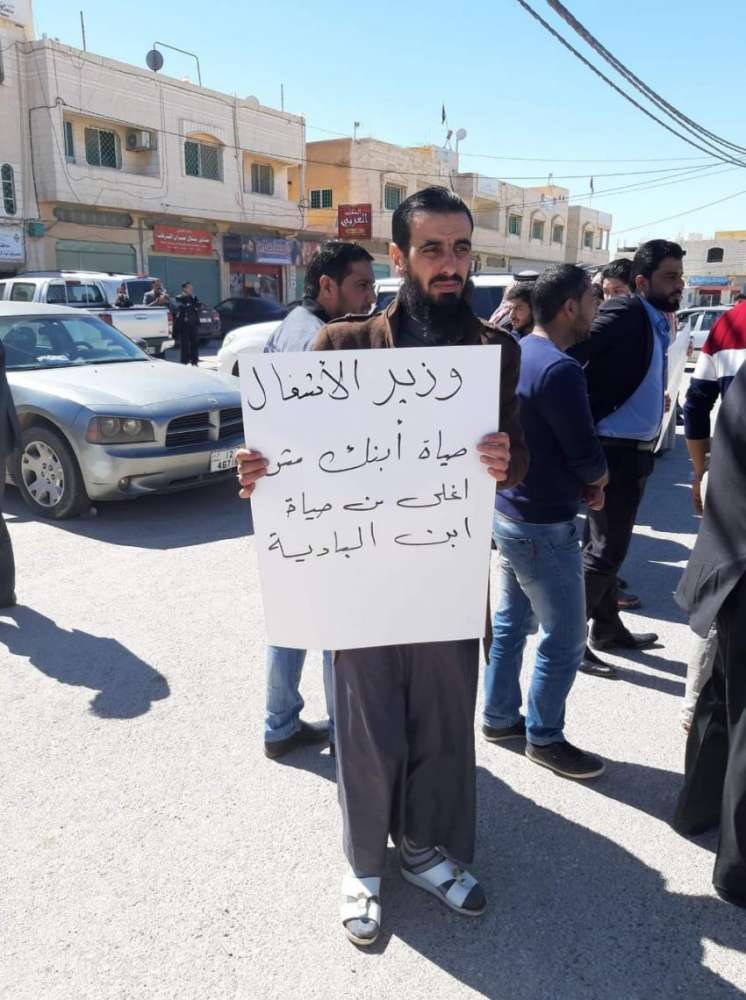 وزير الأشغال
حياة أبنك مش
اغلى من حياة
ابن البادية
العربي